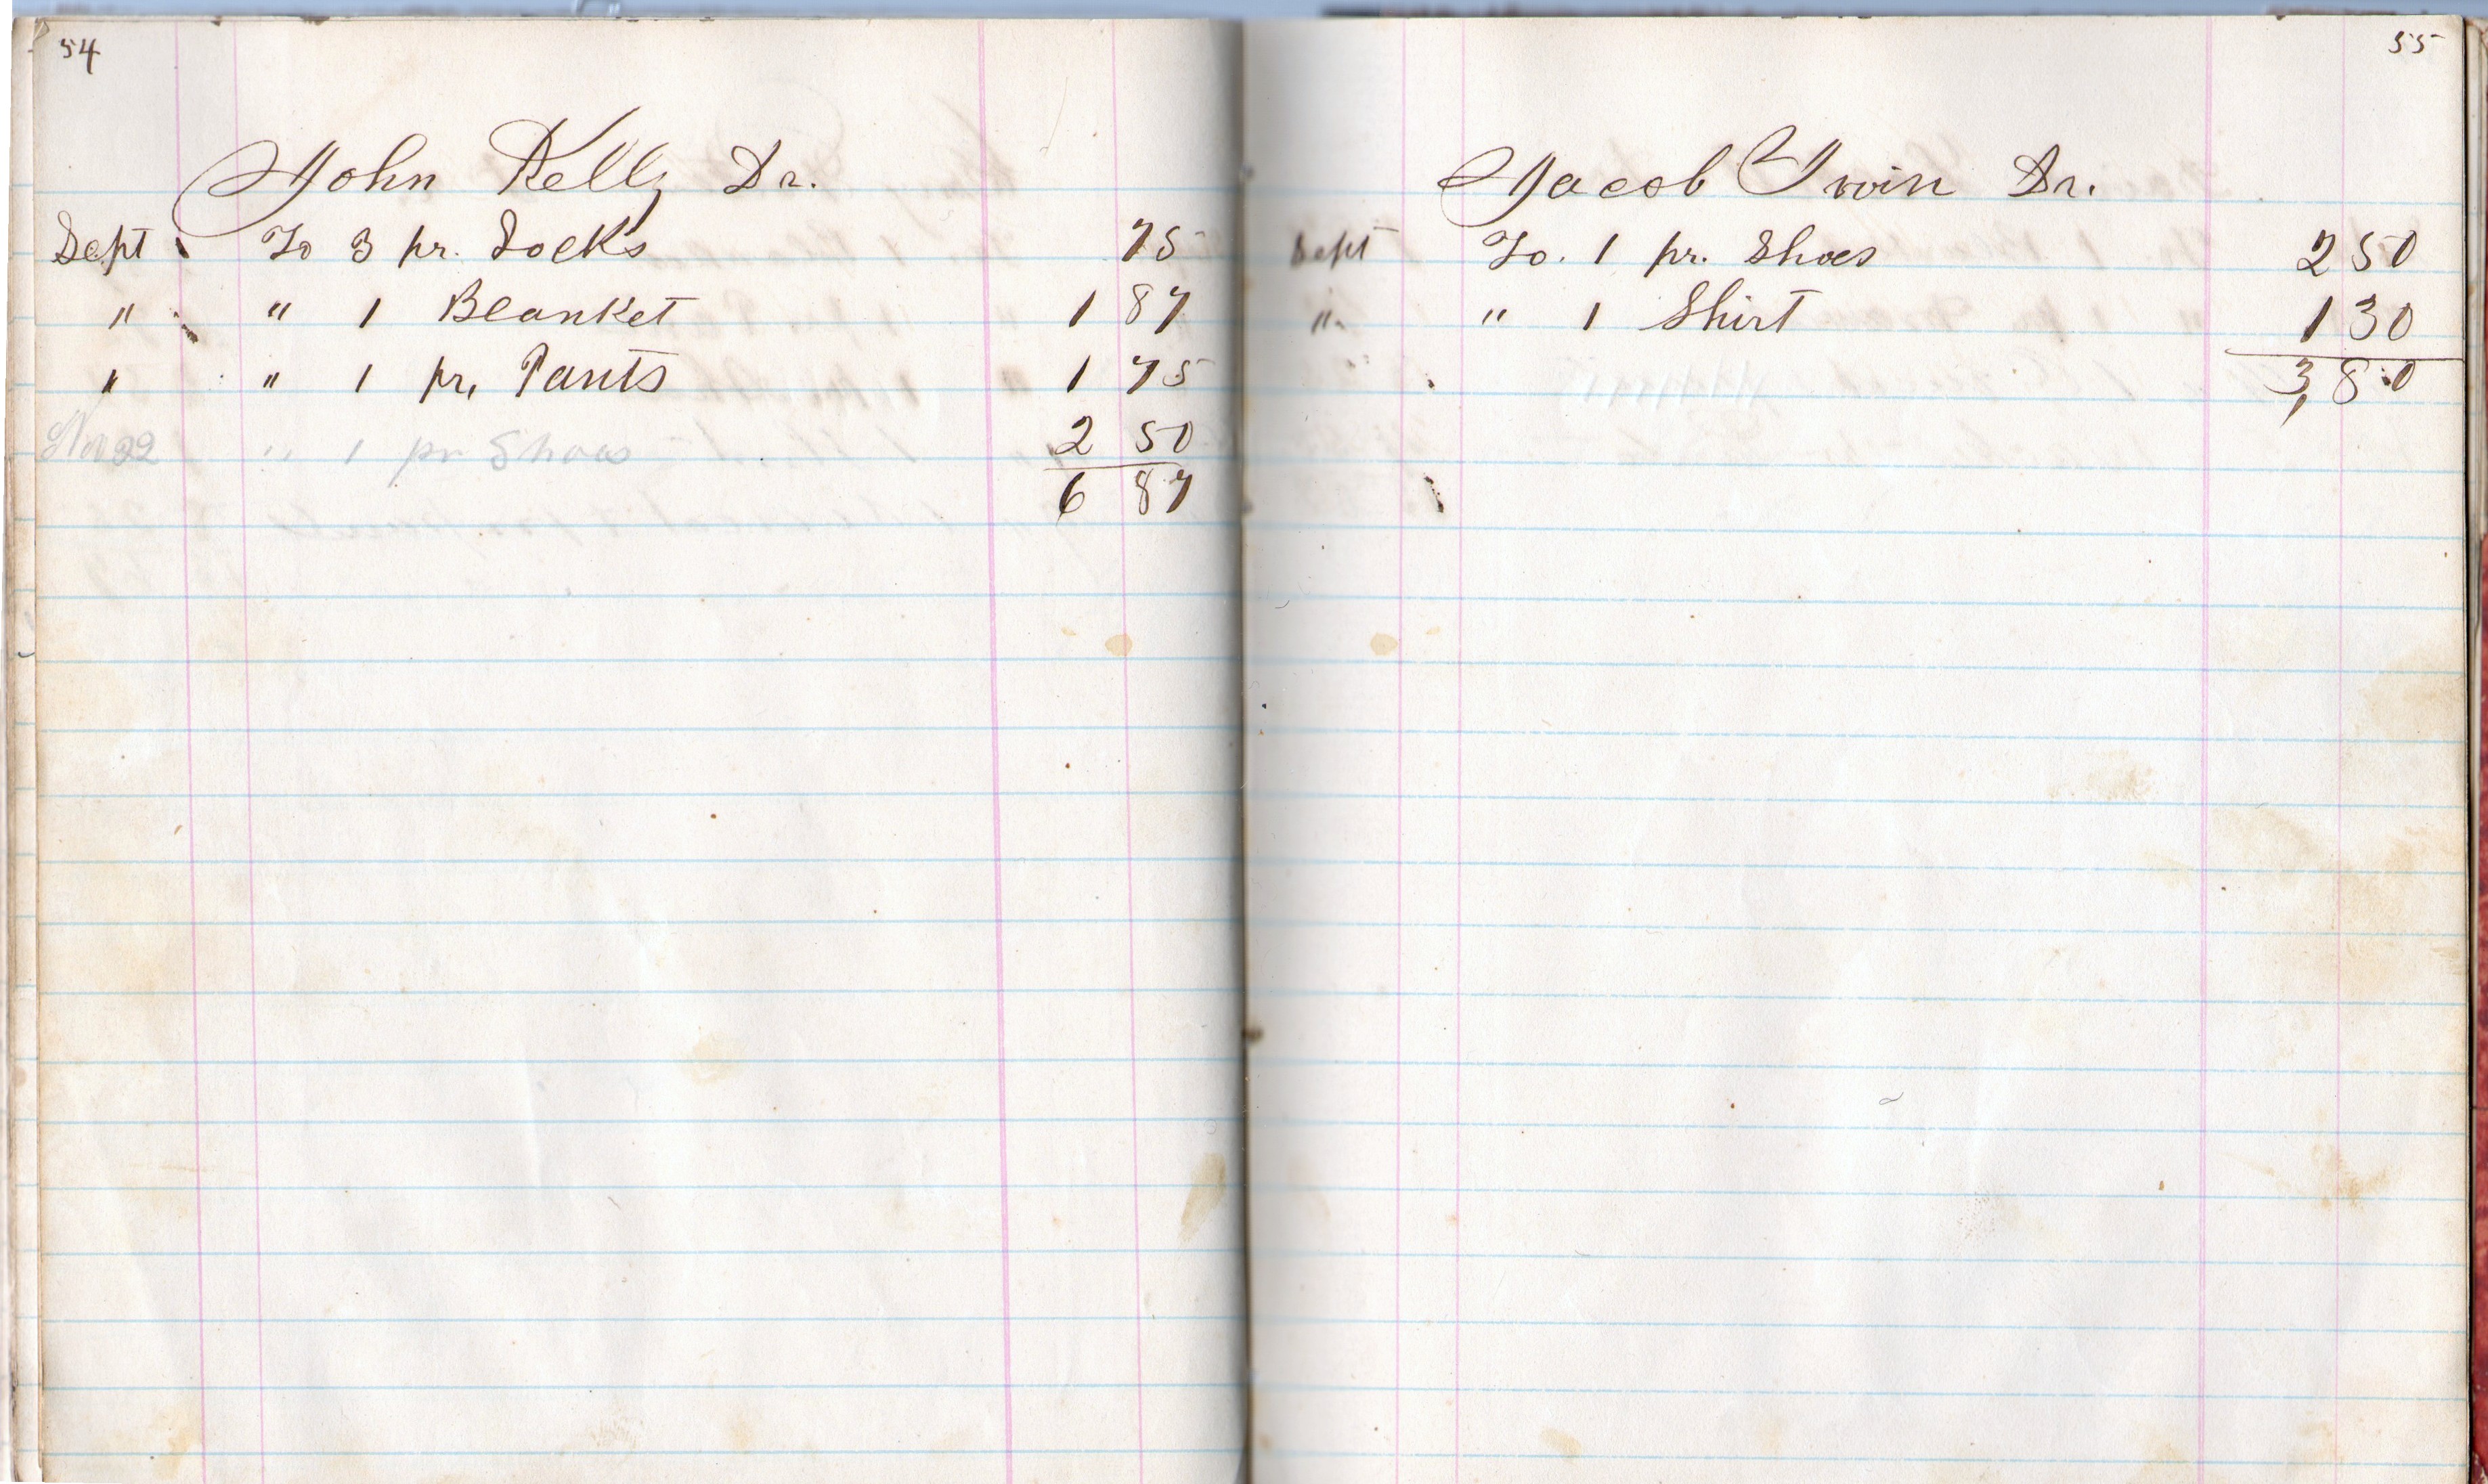 54
John Kelly Dr.
Sept To 3 pr. Socks 75
" " 1 Blanket 1 87
" " 1 pr. Pants 1 75
Nov 22 " 1 pr Shoes 2 50
6 87
55
Jacob Irvin Dr.
Sept To. 1 pr. Shoes 2 50
" " 1 Shirt 1 30
3,80